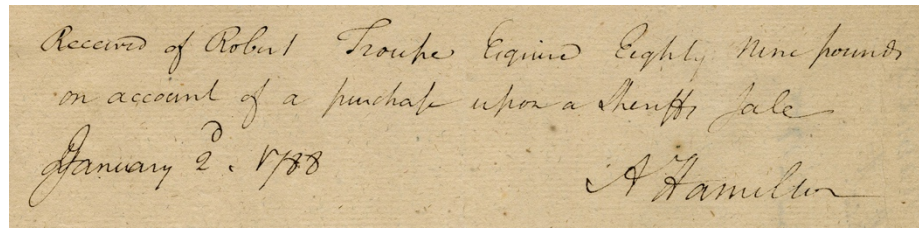 Received of Robert Troupe Esquire Eighty Nine pounds
on account of a purchase upon a Sheriffs Sale
January 2d. 1788
A Hamilton